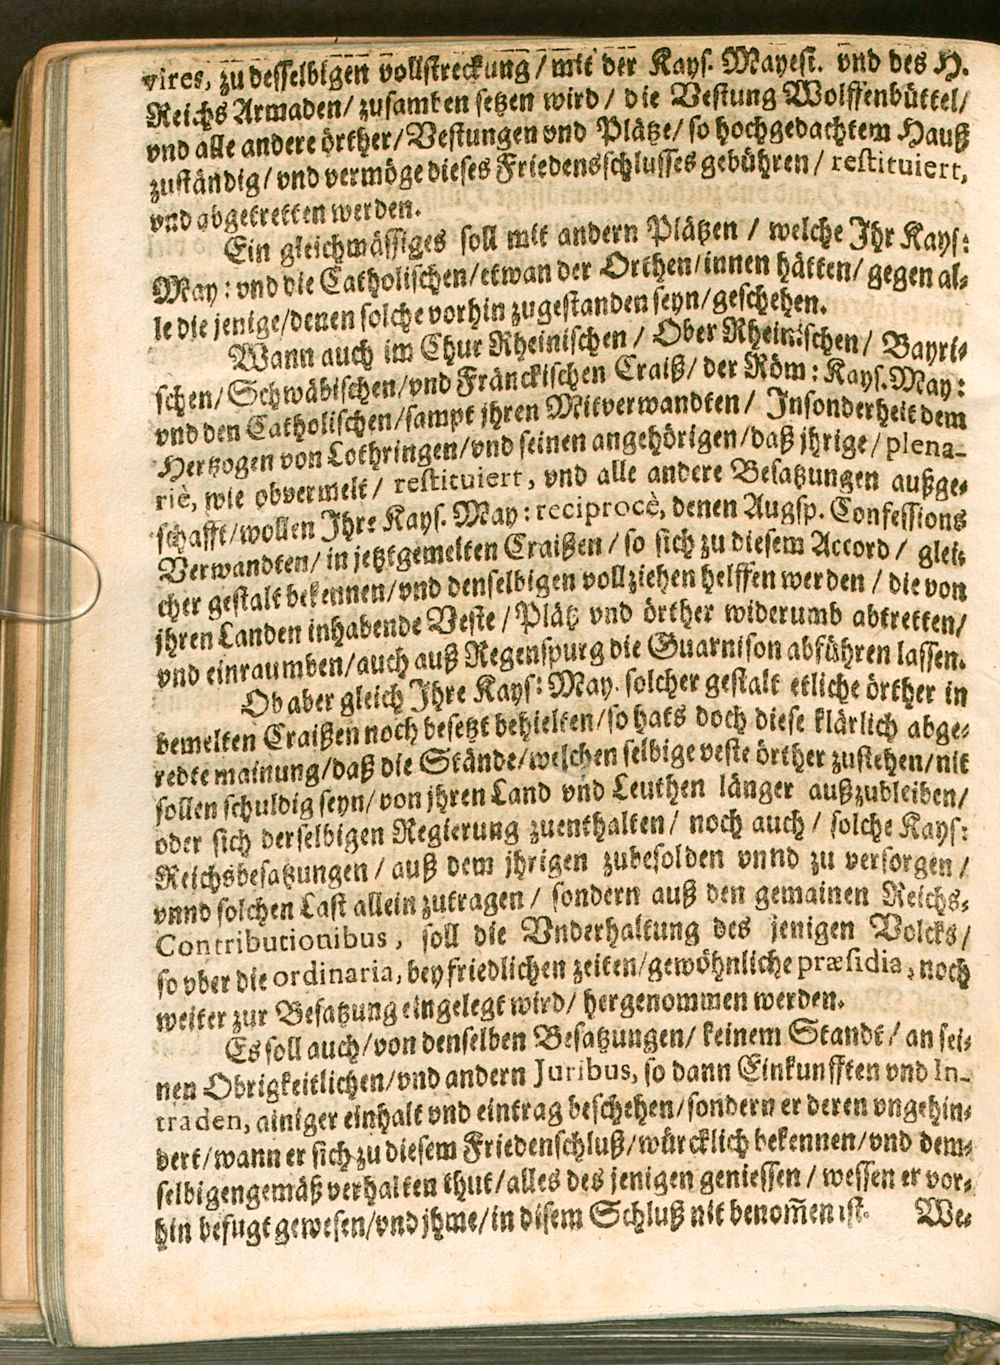 vires, zu desselbigen vollstreckung/ mit der Kays. Mayest. vnd des H.
Reichs Armaden/ zusambten setzen wird/ die Vestung Wolffenbüttel/
vnd alle andere örther/ Vestungen vnd Plätze/ so hochgedachtem Hauß
zuständig/ vnd vermöge dieses Friedensschlusses gebühren/ restituiert,
vnd abgetretten werden.
Ein gleichwässiges soll mit andern Plätzen / welche Ihr Kays:
May: vnd die Catholischen/ etwan der Orthen/ innen hätten/ gegen al-
le die jenige/ denen solche vorhin zugestanden seyn/ geschehen.
Wann auch im Chur Rheinischen / Ober Rheinischen/ Bayri-
schen/ Schwäbischen/ vnd Fränckischen Craiß/ der Röm: Kays. May:
vnd den Catholischen/ sampt jhren Mitverwandten/ Insonderheit dem
Hertzogen von Lothringen/ vnd seinen angehörigen/ daß jhrige/ plena-
riè, wie obvermelt/ restituiert, vnd alle andere Besatzungen außge-
schafft/ wollen Ihre Kays. May: reciprocè, denen Augsp. Confessions
Verwandten/ in jetztgemelten Craißen/ so sich zu diesem Accord/ glei-
cher gestalt bekennen/ vnd denselbigen vollziehen helffen werden/ die von
jhren Landen inhabende Veste/ Plätz vnd örther widerumb abtretten/
vnd einraumben/ auch auß Regenspurg die Guarnison abführen lassen.
Ob aber gleich Ihre Kays: May. solcher gestalt etliche örther in
bemelten Craißen noch besetzt behielten/ so hats doch diese klärlich abge-
redte mainung/ daß die Stände/ welchen selbige veste örther zustehen/ nit
sollen schuldig seyn/ von jhren Land vnd Leuthen länger außzubleiben/
oder sich derselbigen Regierung zuenthalten/ noch auch/ solche Kays:
Reichsbesatzungen/ auß dem jhrigen zubesolden vnnd zu versorgen/
vnnd solchen Last allein zutragen/ sondern auß den gemainen Reichs-
Contributionibus, soll die Vnderhaltung des jenigen Volcks/
so vber die ordinaria, bey friedlichen zeiten/ gewöhnliche præsidia, noch
weiter zur Besatzung eingelegt wird/ hergenommen werden.
Es soll auch/ von denselben Besatzungen/ keinem Standt/ an sei-
nen Obrigkeitlichen/ vnd andern Juribus, so dann Einkunfften vnd In-
traden, ainiger einhalt vnd eintrag beschehen/ sondern er deren vngehin-
dert/ wann er sich zu diesem Friedenschluß/ würcklich bekennen/ vnd dem-
selbigen gemäß verhalten thut/ alles des jenigen geniessen/ wessen er vor-
hin befugt gewesen/ vnd jhme/ in disem Schluß nit benom̃en ist. We-